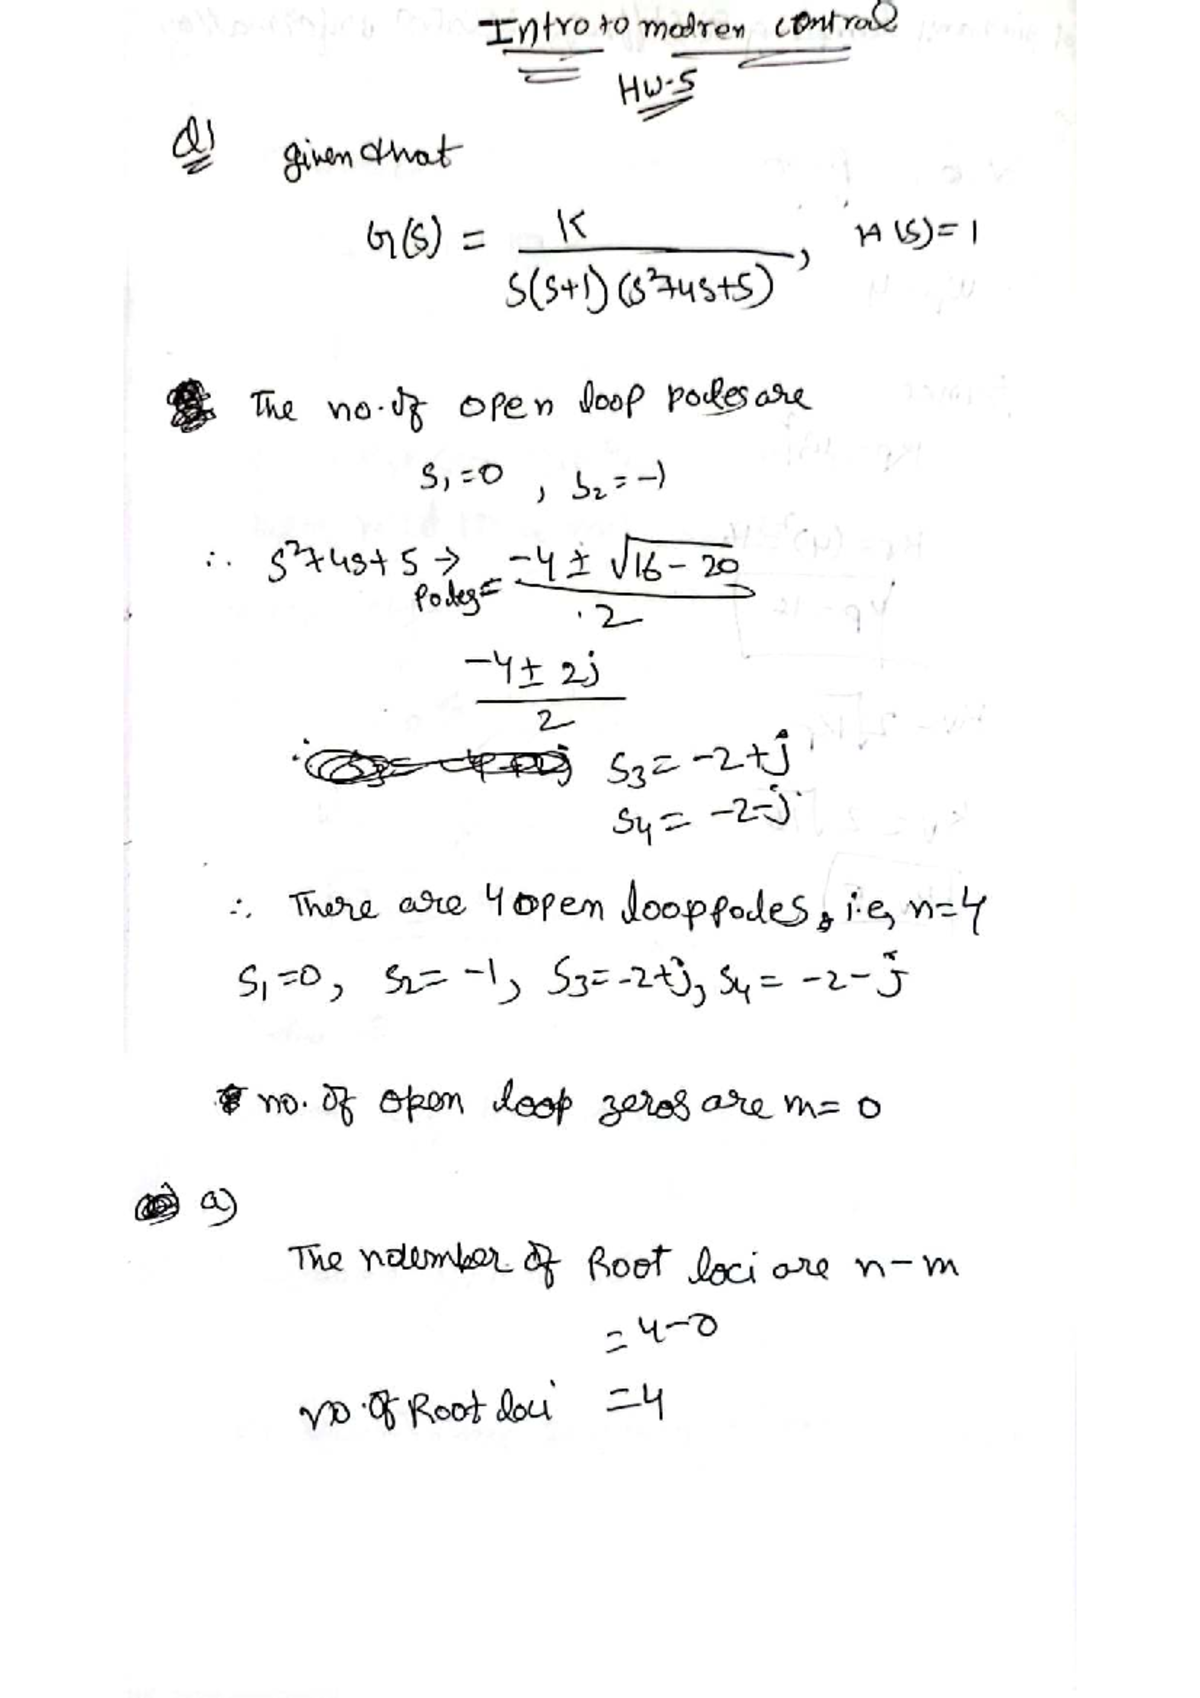 Intro to modren control
HW-5
Q1 given that
G(s) = K / S(S+1)(S²+4S+5), H(S)=1
The no. of open loop poles are
S₁=0, S₂=-1
∴ S²+4S+5 → poles = -4 ± √16-20 / 2
-4 ± 2j / 2
S₃ = -2+j
S₄ = -2-j
∴ There are 4 open loop poles, i.e, n=4
S₁=0, S₂=-1, S₃=-2+j, S₄=-2-j
no. of open loop zeros are m=0
a)
The number of Root loci are n-m
=4-0
no. of Root loci =4